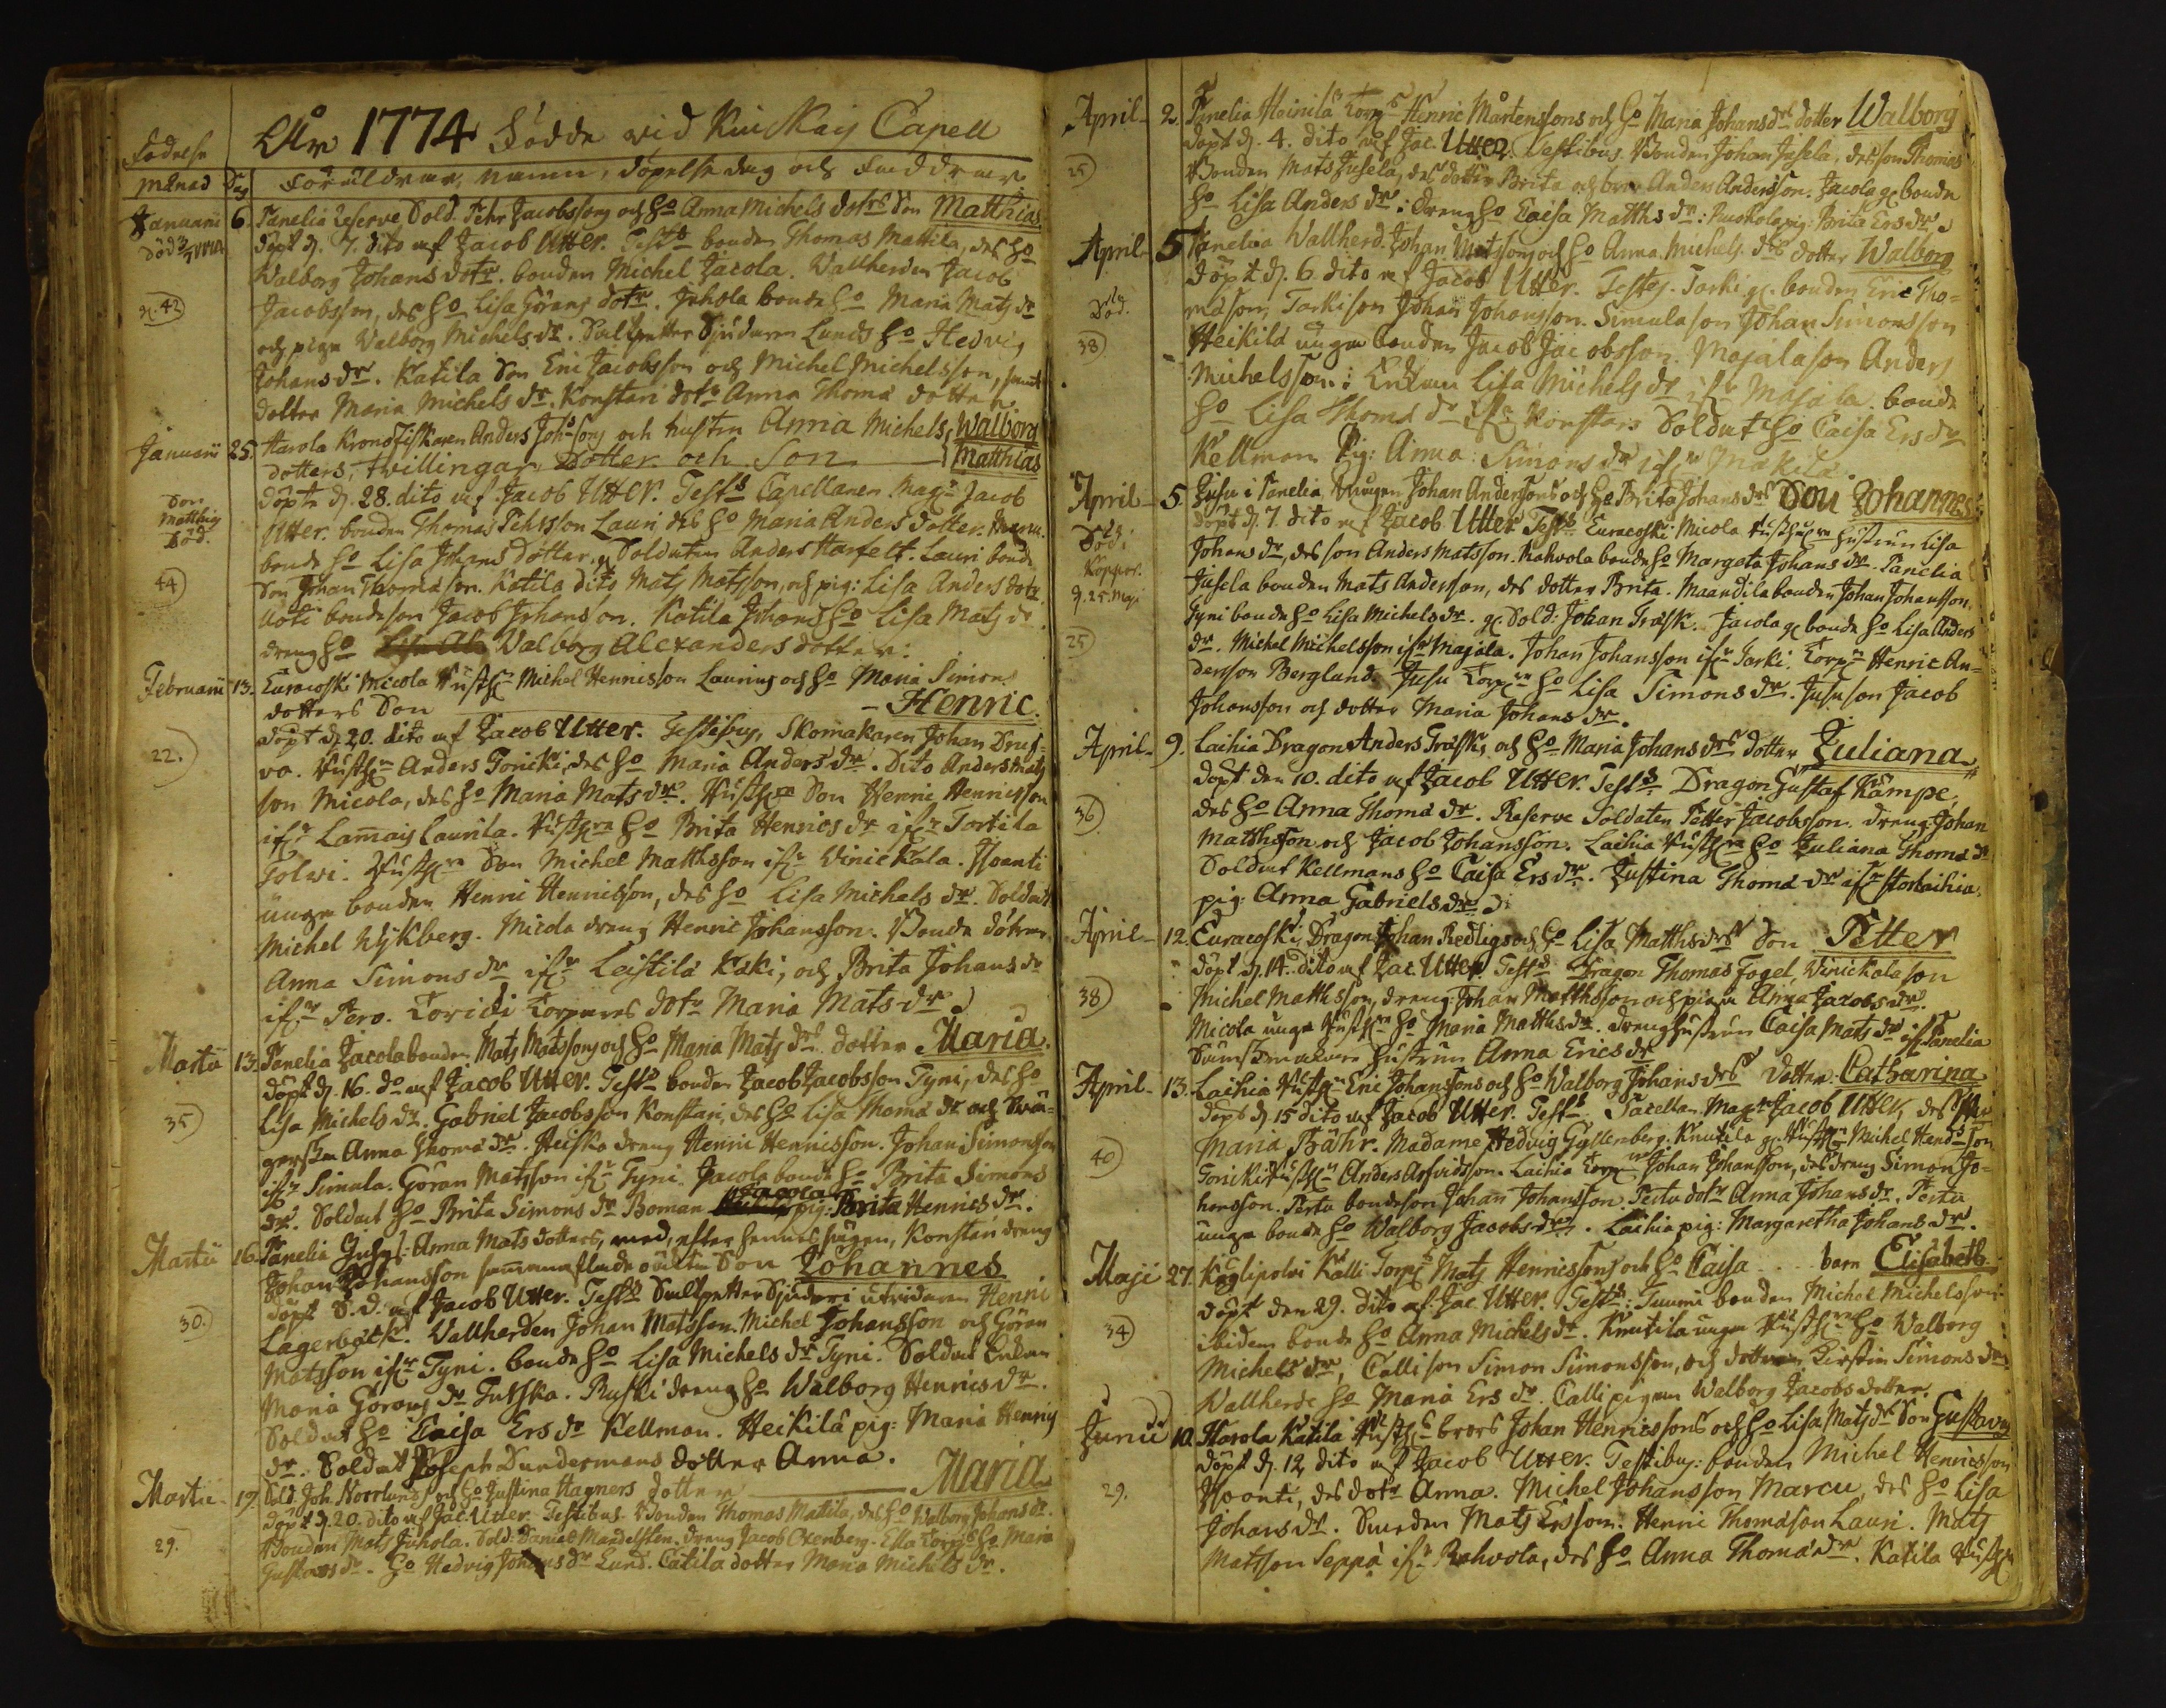 År 1774 Födde vid Kiukais Capell
Födelse
månad Dag Föräldrar, namn, döpelse dag och Faddrar
Januarii 6. Panelia Reserve Sold. Pehr Jacobssons och ho Anna Michels dotrs Son Matthias
Död
döpt d. 7. dito af Jacob Utter. Test:s bonden Thomas Mattila, des ho
Walborg Johans dotr. bonden Michel Jacola. Vallherden Jacob
42
Jacobsson, des ho Lisa Görans dotr. Juhola bonde ho Maria Mats dr
och piga Walborg Michels dr. Saltpetter Sjudaren Lunds ho Hedvig
Johans dr. Katila Son Eric Jacobsson och Michel Michelsson, samt
dotter Maria Michels dr. Konstari dotr Anna Thomæ dotter
Januarii 25. Harola Kronofiskaren Anders Johssons och hustrun Anna Michels Walborg
dotters, tvillingar Dotter och Son Matthias
döpte d. 28. dito af Jacob Utter. Test:s Capellanen Mag:r Jacob
Son Matthias Död.
Utter. bonden Thomas Pehrsson Lauri des ho Maria Anders dotter.
bonde ho Lisa Johans dotter, Soldaten Anders Harfelt. Lauri bonde
44
Son Johan Thomasson. Katila dito Mats Matsson, och pig: Lisa Anders dotr.
Uoti bondeson Jacob Johansson. Katila Johans ho Lisa Mats dr
dreng ho Walborg Alexanders dotter.
Februarii 13. Euracoski Micola Michel Henricsson Laurins och ho Maria Simons
dotters Son Henric.
döpt d. 20. dito af Jacob Utter. Testibus, Skomakaren Johan
22.
Anders Toricki, des ho Maria Anders dr. Dito Anders Mats
son Micola, des ho Maria Mats dr. Son Henric Henricsson
ifr Lamais Laurila. ho Brita Henrics dr ifr Tortila
Tolvi. Son Michel Matthsson ifr Vinickala.
unge bonden Henric Henricsson, des ho Lisa Michels dr. Soldat
Michel Nykberg. Micola dreng Henric Johansson. Bonde döttrar
Anna Simons dr ifr Leistilä Käki, och Brita Johans dr
ifr Pero. Torpares dotr Maria Mats dr
Martii 13. Panelia Jacola bonden Mats Matssons och ho Maria Mats drs dotter Maria.
döpt d. 16. do af Jacob Utter. Test:s bonden Jacob Jacobsson Tyni, des ho
35
Lisa Michels dr. Gabriel Jacobsson Konstari, des ho Lisa Thomæ dr och Svä-
gerskan Anna Thomæ dr. Heiska dreng Henric Henricsson. Johan Simonsson
ifr Simula. Göran Matsson ifr Tyni. Jacola bonde ho Brita Simons
dr. Soldat ho Brita Simons dr Boman Jacola pig: Brita Henrics dr.
Martii 16. Panelia Anna Mats dotters, med, efter hennes sagen, Konstari dreng
Johan Johansson sammanaflade oäkta Son Johannes
döpt S. D. af Jacob Utter. Test:s Saltpetter Sjuderi utridaren Henric
30.
Lagerbäck. Vallherden Johan Matsson. Michel Johansson och Göran
Matsson ifr Tyni. bonde ho Lisa Michels dr Tyni. Soldat Enkan
Maria Görans dr Tutska. Ruski dreng ho Walborg Henrics dr.
Soldat ho Caisa Ers dr Kellman. Heikilä pig: Maria Henrics
dr. Soldat Joseph Sundermans dotter Anna.
Martii 19. Sold. Joh. Norrlunds och ho Justina Hagners dotter Maria
döpt d. 20. dito af Jac. Utter. Testibus. Bonden Thomas Mattila, des ho Walborg Johans dr.
29.
Bonden Mats Juhola. Sold. Daniel Mandelsten. dreng Jacob Oxenberg. Ella Torp:s ho Maria
Gustavs dr. ho Hedvig Johans dr Lund. Catila dotter Maria Michels dr.
April 2. Panelia Heinilä Torp:s Henric Mårtenssons och ho Maria Johans drs dotter Walborg
döpt d. 4. dito af Jac. Utter. Testibus. Bonden Johan Jusela, des son Thomas
25
Bonden Mats Jusela, des dotter Brita och bror Anders Andersson. Jacola g. bonde
ho Lisa Anders dr: dreng ho Caisa Matths dr: pig: Brita Ers dr.
April 5. Panelia Vallherd. Johan Matssons och ho Anna Michels drs dotter Walborg
döpt d. 6. dito af Jacob Utter. Testes. Tarki g. bonden Eric Tho-
Död.
masson, Tarki son Johan Johansson. Simula son Johan Simonsson
38
Heikilä unge bonden Jacob Jacobsson. Majala son Anders
Michelsson: Enkan Lisa Michels dr ifr Majala bonde
ho Lisa Thomæ dr ifr Konstari Soldat ho Caisa Ers dr
Kellman Pig: Anna Simons dr ifr Mäkilä.
April 5. Jusu i Panelia Drängen Johan Anderssons och ho Brita Johans drs Son Johannes
döpt d. 7. dito af Jacob Utter Test:s Euracoski Micola hustrun Lisa
Död i Koppor. d. 25. Maji
Johans dr, des son Anders Matsson. Rahvola bonde ho Margeta Johans dr. Panelia
Jusela bonden Mats Andersson, des dotter Brita. Maandila bonden Johan Johansson.
Tyni bonde ho Lisa Michels dr. g. Sold: Johan Träsk. Jacola g. bonde ho Lisa Anders
25
dr. Michel Michelsson ifr Majala. Johan Johansson ifr Tarki. Torp:n Henric An-
dersson Berglund. Jusu Torp:n ho Lisa Simons dr. Jusu son Jacob
Johansson och dotter Maria Johans dr.
April 9. Laihia Dragon Anders Träsks och ho Maria Johans drs dotter Juliana
döpt den 10. dito af Jacob Utter. Test:s Dragon Gustaf Kämpe,
36
des ho Anna Thomæ dr. Reserve Soldaten Petter Jacobsson. dreng. Johan
Matthsson och Jacob Johansson. Laihia ho Juliana Thomæ dr
Soldat Kellmans ho Caisa Ers dr. Justina Thomæ dr ifr Storlaihia.
pig: Anna Gabriels dr.
April 12. Euracoski, Dragon Johan Redligs och ho Lisa Matths drs Son Petter
döpt d. 14. dito af Jac. Utter. Test:s Dragon Thomas Fogel, Vinickala son
38
Michel Matthsson, dreng: Johan Matthsson och pigan Anna Jacobs dr.
Micola unge ho Maria Matths dr. dreng hustrun Caisa Mats dr ifr Panelia
hustrun Anna Erics dr
April 13. Laihia Eric Johanssons och ho Walborg Johans drs dotter Catharina
döpt d. 15 dito af Jacob Utter. Test:s Mag:r Jacob Utter, des
40
Maria Bähr. Madame Hedvig Gyllenberg. Knutila g. Michel Henrsson
Toricki Anders Arfvidsson. Laihia Torp:n Johan Johansson, des dreng Simon Jo-
hansson. Pertu bondeson Johan Johansson. Pertu dotr Anna Johans dr. Pertu
unge bonde ho Walborg Jacobs dr. Laihia pig: Margaretha Johans dr.
Maji 27. Kalli Torp:s Mats Henricssons och ho Caisa .... barn Elisabeth
döpt den 29. dito af Jac. Utter. Test:s: Tuumi bonden Michel Michelsson
34
ibidem bonde ho Anna Michels dr. Knutila unge ho Walborg
Michels dr, Calli son Simon Simonsson, och dottren Kirstin Simons dr.
Vallherde ho Maria Ers dr. Calli pigan Walborg Jacobs dotter.
Junii 10. Harola Katila brors Johan Henricssons och ho Lisa Mats drs Son Gustavus
döpt d. 12 dito af Jacob Utter. Testibus: bonden Michel Henricsson
29.
des dotr Anna. Michel Johansson Marcu, des ho Lisa
Johans dr. Smeden Mats Ersson. Henric Thomasson Lauri. Mats
Matsson Seppä ifr Rahvola, des ho Anna Thomæ dr. Katila